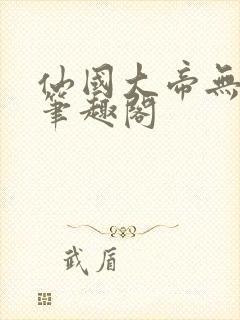 仙國大帝無
筆趣閣
武盾